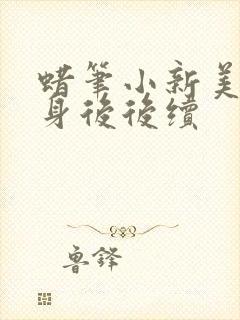 蜡筆小新美
身後後續
魯鋒